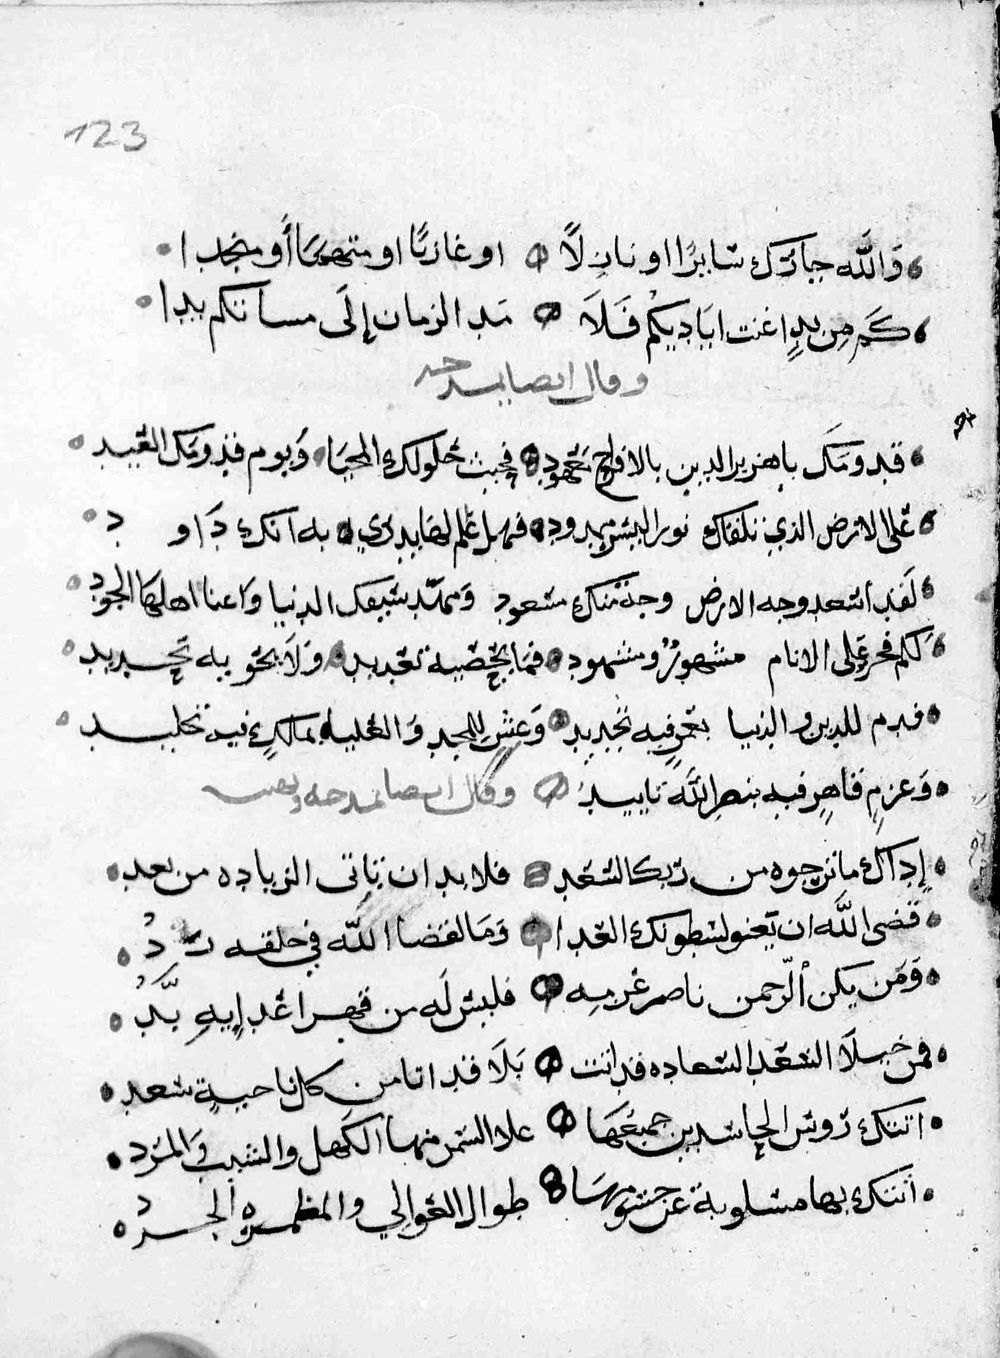 123
وَاللَّه جارك سايرًا او نازلًا او غازيًا او متهمًا أو منجدا
كَم مِن يدٍ اغنت اياديكم فَلاَ مَد الزمان إِلَى مساتكم يدا
وقال ايضا يمدحه
قدومَك ياهزبر الدين بالافراح مَعْهود فحيث حُلولك المحيَا وَيوم قدومَك العيد
عَلى الارض الذي تلقاك نور البشر ممدود فهل عَلم لها يدري به انك دَاود
لَقد أسعد وجه الارض وجه مَنك مسعود وَممّد سيفك الدنيا وَاعنا اهلهَا الجود
لَكم فخر عَلى الانام مشهورٌ ومشهود فمَا يحصيه تعديد وَلاَ يحويه تحديد
فدم للدين والدنيا بعُمرٍ فيه تجديد وَعش للمجد وَالعُليا بملكٍ فيه تخليد
وَعزمٍ قاهرٍ فيه بنصر اللَّه تاييد وقال ايضا يمدحه
إِذا لك ما ترجوه من ربك السعد فلا بد ان تاتى الزياده من بعد
قضى اللَّه ان يَعنو لسطوتك العدا وَمَا لقضا اللَّه في خلقه رَدُّ
وَمَن يكن الرّحمن ناصر عَزمِه فليس لَه من قهر اعْدايِهِ بُدُّ
السَعد السعاده قد اتت بَلاَ قد اتا من كل ناحيةٍ سعد
اتتك رؤس الحاسدين جميعهَا علا السمر منها الكَهل والشيب وَالمرد
أتتك بها مسلوبة عن جسومهَا طوال العَوالي والمطهمه الجرد